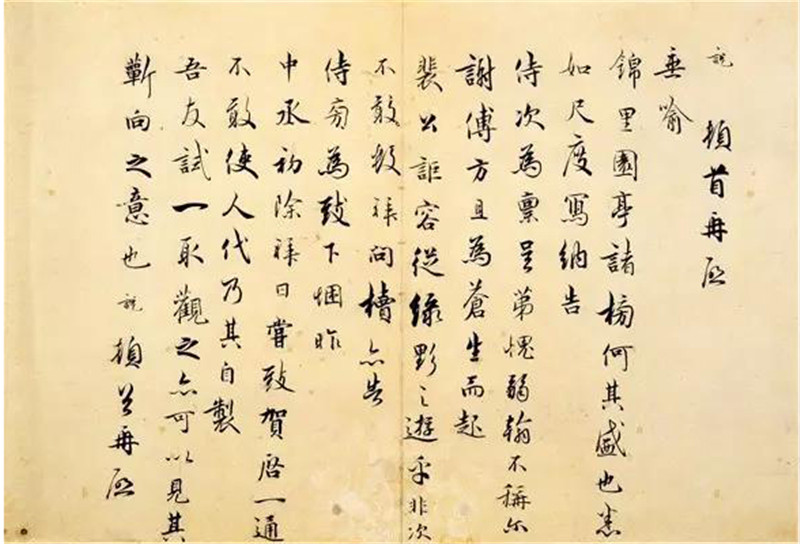 説頓首再啟
垂喻
錦里園亭諸榜何其盛也悉
如尺度寫納告
侍次為稟呈第愧弱翰不稱尔
謝傅方且為蒼生而起
裴公詎容從綠野之遊乎非次
不敢數拜問牘亦告
侍旁為致下悃昨
中丞初除拜日嘗致賀啓一通
不敢使人代乃其自製
吾友試一取觀之亦可以見其
蘄向之意也説頓首再啟